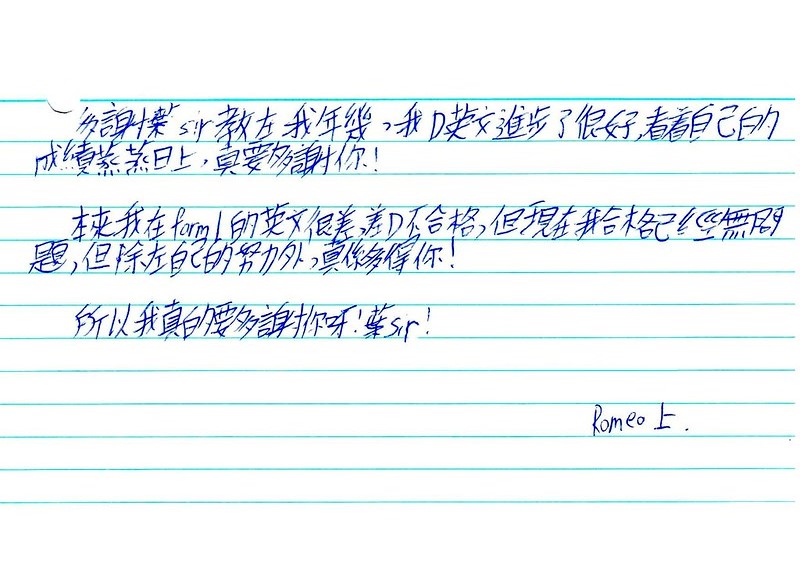 多謝葉sir教左我年幾，我D英文進步了很好，看着自己的
成績蒸蒸日上，真要多謝你！
本來我在form 1的英文很差，差D不合格，但現在我合格已經無問
題，但除左自己的努力外，真係多得你！
所以我真的要多謝你呀！葉sir！
Romeo 上.